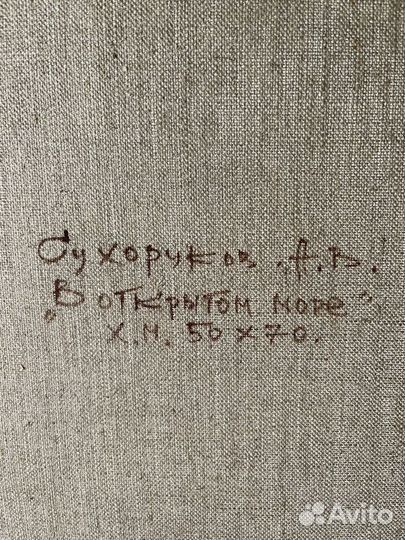 Сухоруков А.В.
„В открытом море"
х.м. 50х70.
Avito